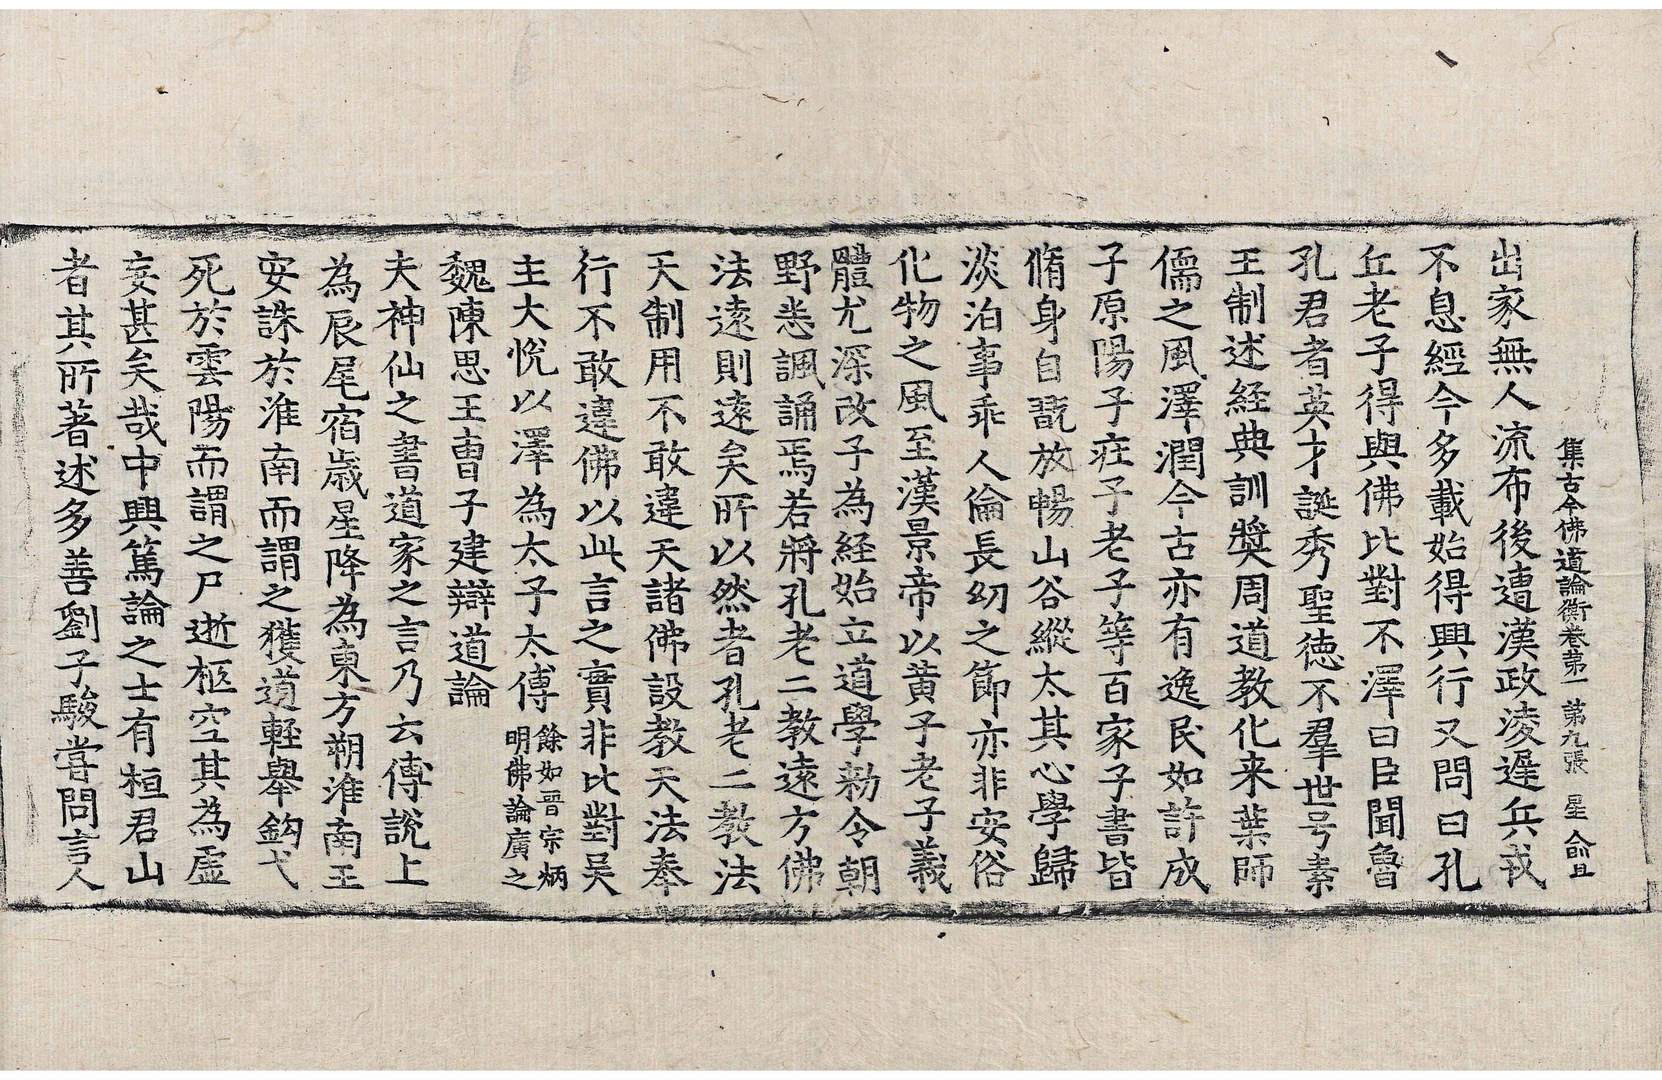 集古今佛道論衡卷苐一 第九張 星 俞且
出家無人流布後遭漢政淩遲兵戎
不息經今多載始得興行又問曰孔
丘老子得與佛比對不澤曰臣聞魯
孔君者英才誕秀聖德不羣世号素
王制述経典訓奬周道教化来葉師
儒之風澤潤今古亦有逸民如許成
子原陽子疘子老子等百家子書皆
脩身自翫放暢山谷縱太其心學歸
淡泊事乖人倫長幼之節亦非安俗
化物之風至漢景帝以黄子老子義
體尤深改子為経始立道學勑令朝
野悉諷誦焉若將孔老二教遠方佛
法遠則遠矣所以然者孔老二教法
天制用不敢違天諸佛設教天法奉
行不敢違佛以此言之實非比對吴
主大悅以澤為太子太傅 餘如晋宗炳明佛論廣之
魏陳思王曹子建辯道論
夫神仙之書道家之言乃云傅說上
為辰尾宿歳星降為東方朔淮南王
安誅於淮南而謂之獲道軽舉鈎弋
死於雲陽而謂之尸逝柩空其為虛
妄甚矣哉中興篤論之士有桓君山
者其所著述多善劉子駿甞問言人